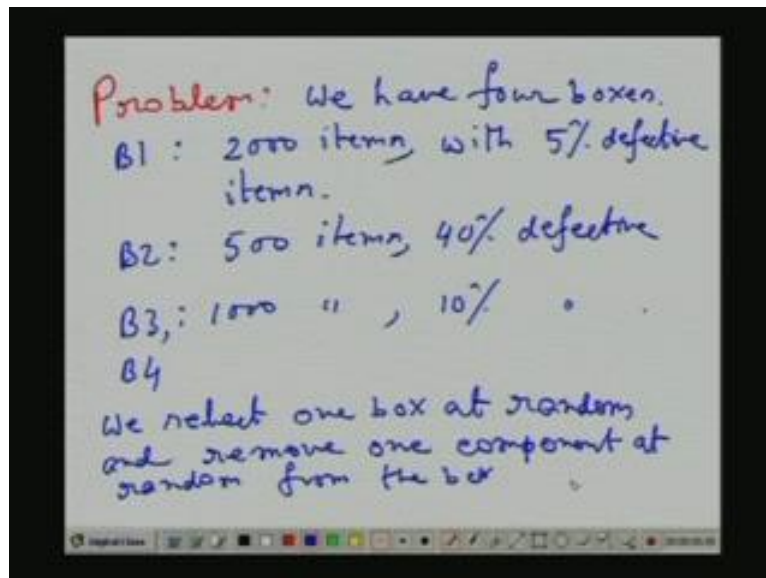 Problem: We have four boxes.
B1 : 2000 items, with 5% defective
items.
B2: 500 items, 40% defective
B3,: 1000 " , 10% " .
B4
We select one box at random
and remove one component at
random from the box